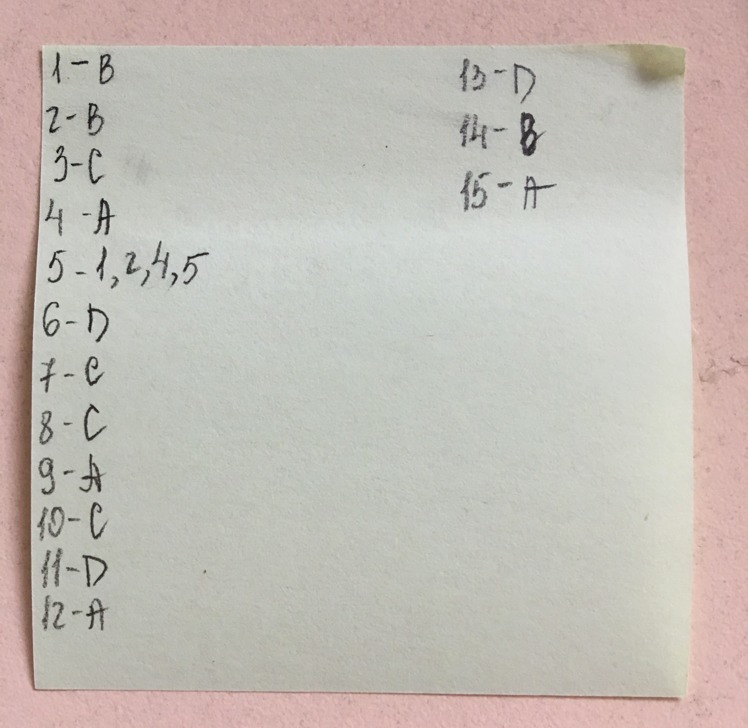 1-B
2-B
3-C
4-A
5-1,2,4,5
6-D
7-C
8-C
9-A
10-C
11-D
12-A
13-D
14-B
15-A